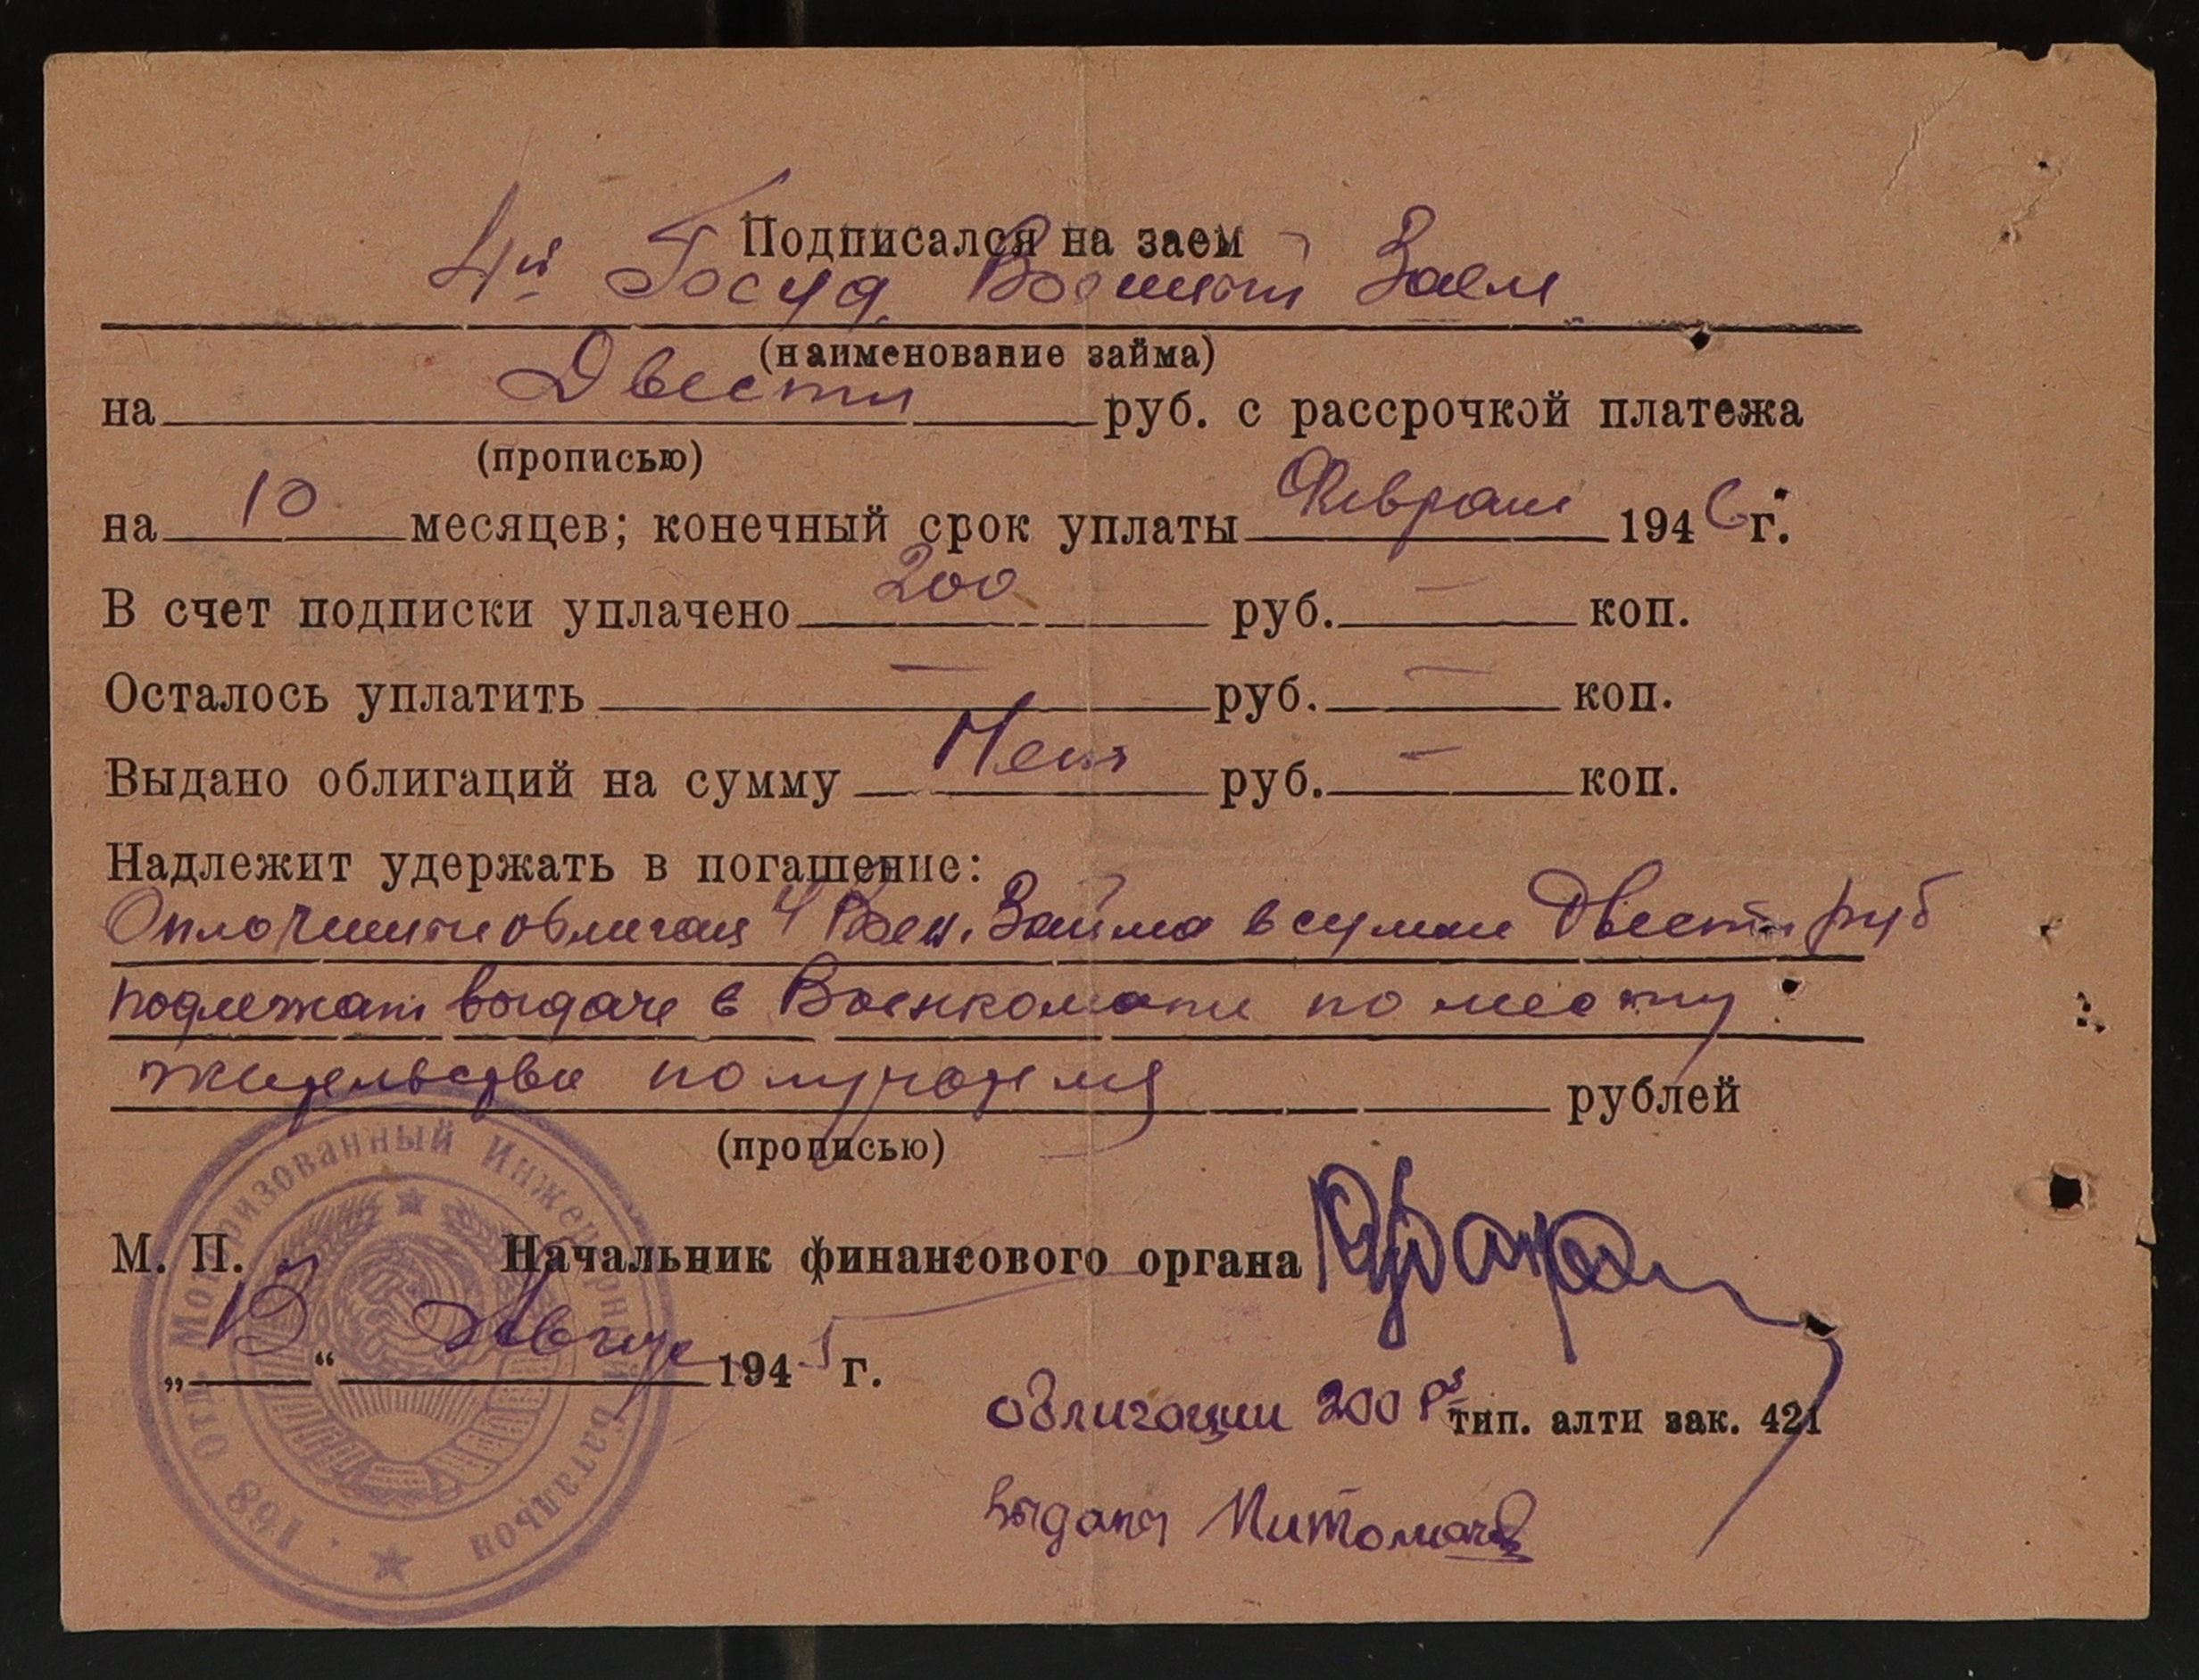 Подписался на заем
4й Госуд. Военный Заем
(наименование займа)
на Двести руб. с рассрочкой платежа
(прописью)
на 10 месяцев; конечный срок уплаты Февраль 1946 г.
В счет подписки уплачено 200 руб. — коп.
Осталось уплатить — руб. — коп.
Выдано облигаций на сумму Нет руб. — коп.
Надлежит удержать в погашение:
4 Воен. Займа в сумме Двести руб
подлежат выдаче в Военкомате по месту
жительства рублей
(прописью)
М. П. Начальник финансового органа
„ “ Август 1945 г.
облигации 200 тип. алти зак. 421
выданы
168 Отд. Моторизованный Инженерный Батальон